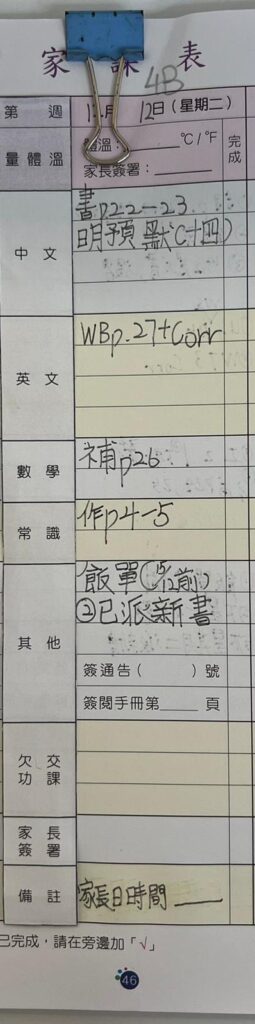 家課表
4B
第 週 12日(星期二)
量體溫 體溫:______°C/°F 完成
家長簽署:______
中文 書p22-23
明預 默(十四)
英文 WBp.27+Corr
數學 補p26
常識 作p4-5
其他 飯單(15/12前)
②已派新書
簽通告( )號
簽閱手冊第______頁
欠交功課
家長簽署
備註 家長日時間____
已完成,請在旁邊加「√」
46